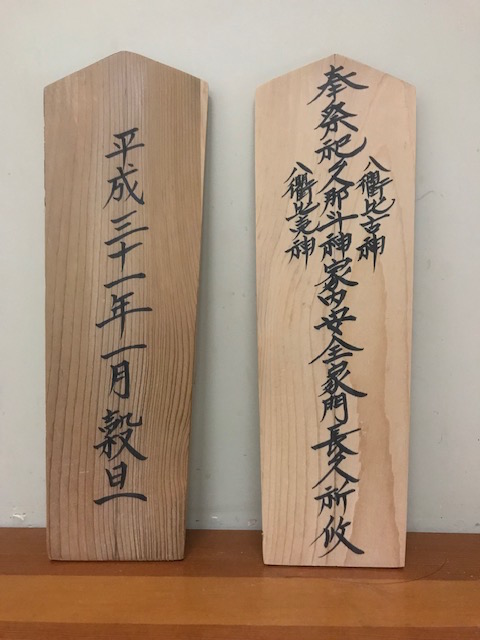 奉祭祀久那斗神家内安全家門長久祈攸
八衢比古神
八衢比売神
平成三十一年一月穀旦